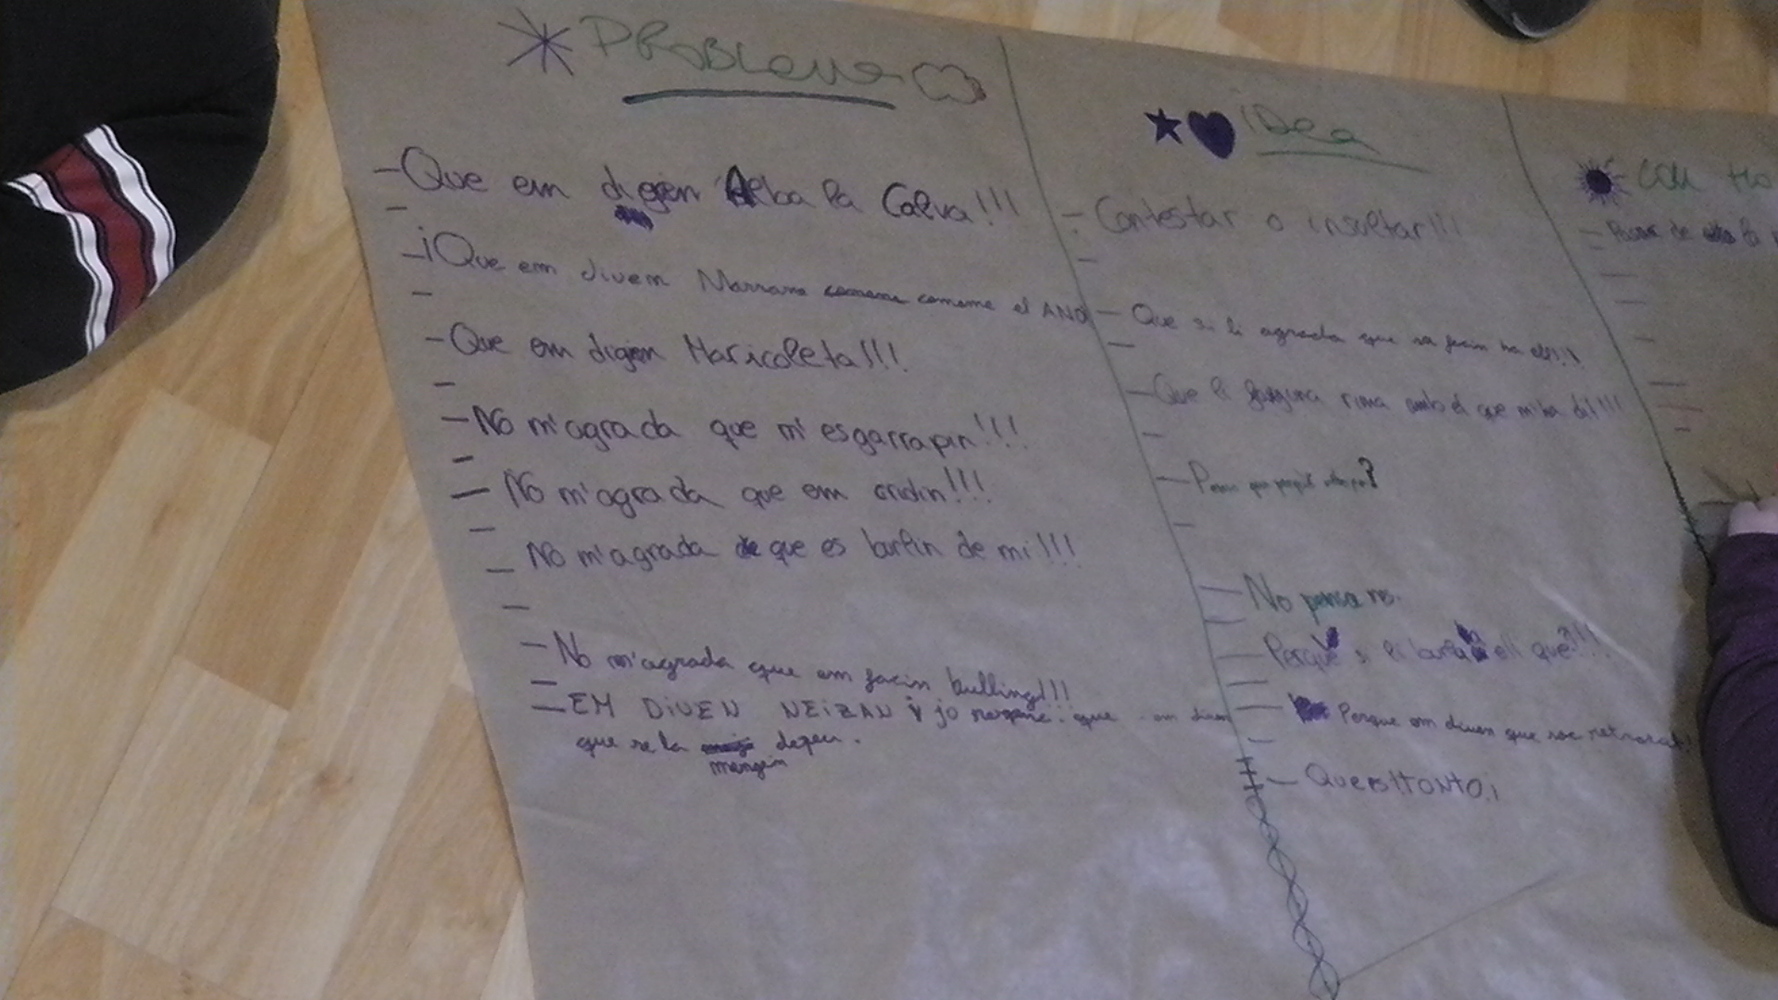 PROBLEMA
- Que em digen Alba la Calva!!!
- ¡Que em diuen Marrano comeme el ANO
- Que em digen Maricoleta!!!
- No m'agrada que m'esgarrapin!!!
- No m'agrada que em cridin!!!
No m'agrada que es burlin de mi!!!
- No m'agrada que em facin bulling!!!
- EM DIUEN NEIZAN y jo que em diuen
que se la depeu.
mengin
iDea
- Contestar o insultar!!!
- Que si li agrada que sa facin ha ell!!!
- Que li rima amb el que m'ha dit!!!
- No pensa res.
- Perquè si ell que?!!!
- Porque em diuen que soc retrasat!
- QUEESTTONTO¡
COM HO
- de la